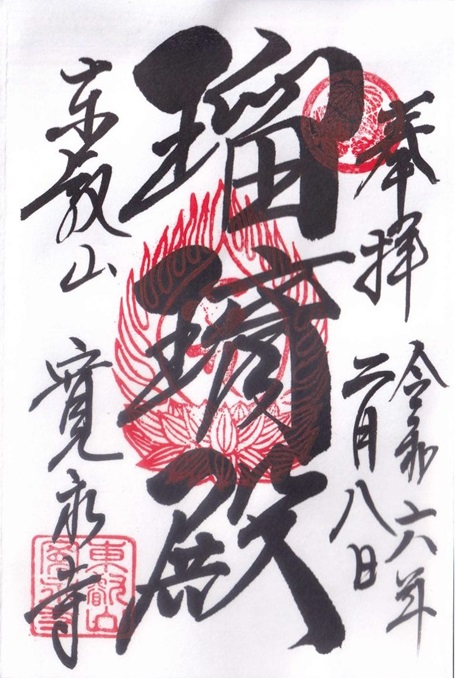 奉拝
令和六年
二月八日
瑠璃殿
東叡山
寛永寺
東叡山